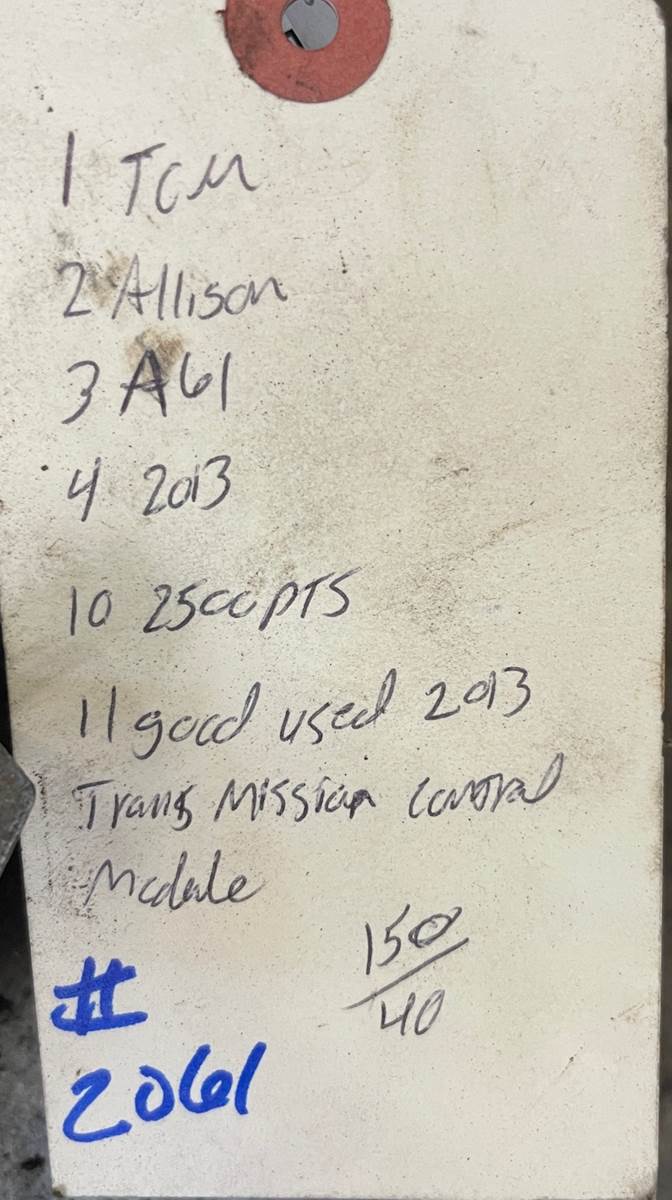 1 TCM
2 Allison
3 A61
4 2013
10 2500 PTS
11 good used 2013
Transmission control
Module
150
40
#
2061